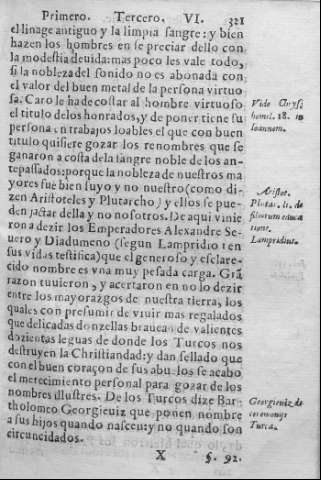 Primero. Tercero. VI. 321
el linage antiguo y la limpia sangre: y bien
hazen los hombres en se preciar dello con
la modestia deuida: mas poco les vale todo,
si la nobleza del sonido no es abonada con
el valor del buen metal de la persona virtuo
sa. Caro le ha de costar al hombre virtuoso
el titulo de los honrados, y de poner tiene su
persona en trabajos loables el que con buen
titulo quisiere gozar los renombres que se
ganaron a costa de la sangre noble de los an-
tepassados: porque la nobleza de nuestros ma
yores fue bien suyo y no nuestro (como di-
zen Aristoteles y Plutarcho) y ellos se pue-
den jactar della y no nosotros. De aqui vinie
ron a dezir los Emperadores Alexandre Se-
uero y Diadumeno (segun Lampridio en
sus vidas testifica) que el generoso y esclare-
cido nombre es vna muy pesada carga. Grā
razon tuuieron, y acertaron en no lo dezir
entre los mayorazgos de nuestra tierra, los
quales con presumir de viuir mas regalados
que delicadas donzellas brauean de valientes
dozientas leguas de donde los Turcos nos
destruyen la Christiandad: y dan sellado que
con el buen coraçon de sus abuelos se acabo
el merecimiento personal para gozar de los
nombres illustres. De los Turcos dize Bar-
tholomeo Georgieuiz que ponen nombre
a sus hijos quando nascen: y no quando son
circuncidados.
X §. 92.
Vide Chrys.
homil. 28. in
Ioannem.
Aristot.
Plutar. li. de
filiorum educa
tione.
Lampridius.
Georgieuiz de
ceremonijs
Turca.